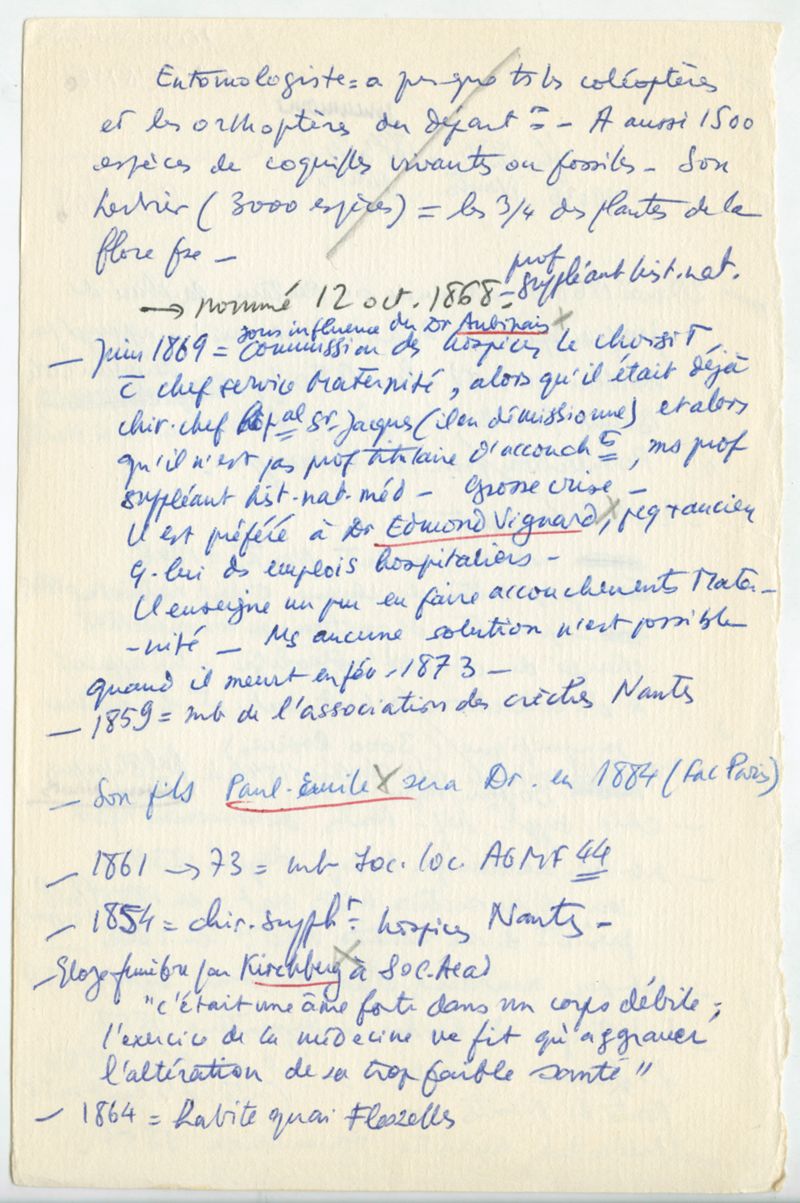 Entomologiste = a presque ts ls coléoptères
et les orthoptères du départt - A aussi 1500
espèces de coquilles vivantes ou fossiles - Son
herbier (3000 espèces) = les 3/4 des plantes de la
flore fse -
→ nommé 12 oct. 1868 = prof suppléant hist. nat.
- Juin 1869 = sous influence du Dr Aubinais X
Commission des hospices le choisit
c̄ chef service Maternité, alors qu'il était déjà
chir. chef hôpal St Jacques (il en démissionne) et alors
qu'il n'est pas prof titulaire d'accoucht, ms prof
suppléant hist-nat-méd - Grosse crise -
Il est préféré à Dr Edmond Vignard X, + ancien
q. lui ds emplois hospitaliers -
Il enseigne un peu en faire accouchements Mater-
-nité - Ms aucune solution n'est possible
quand il meurt en fév. 1873 -
- 1859 = mb de l'association des crèches Nantes
- Son fils Paul-Emile X sera Dr. en 1884 (Fac Paris)
- 1861 → 73 = mb Soc. loc. AGMF 44
- 1854 = chir. supplt = hospices Nantes -
- Eloge funèbre par Kirchberg X à Soc. Acad
"c'était une âme forte dans un corps débile ;
l'exercice de la médecine ne fit qu'aggraver
l'altération de sa trop faible santé"
- 1864 = habite quai Flesselles